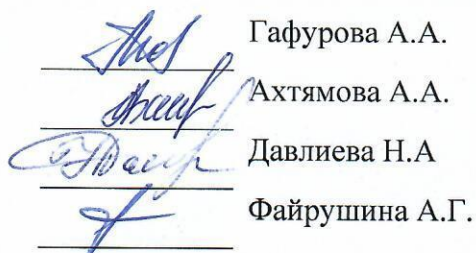 Гафурова А.А.
Ахтямова А.А.
Давлиева Н.А
Файрушина А.Г.